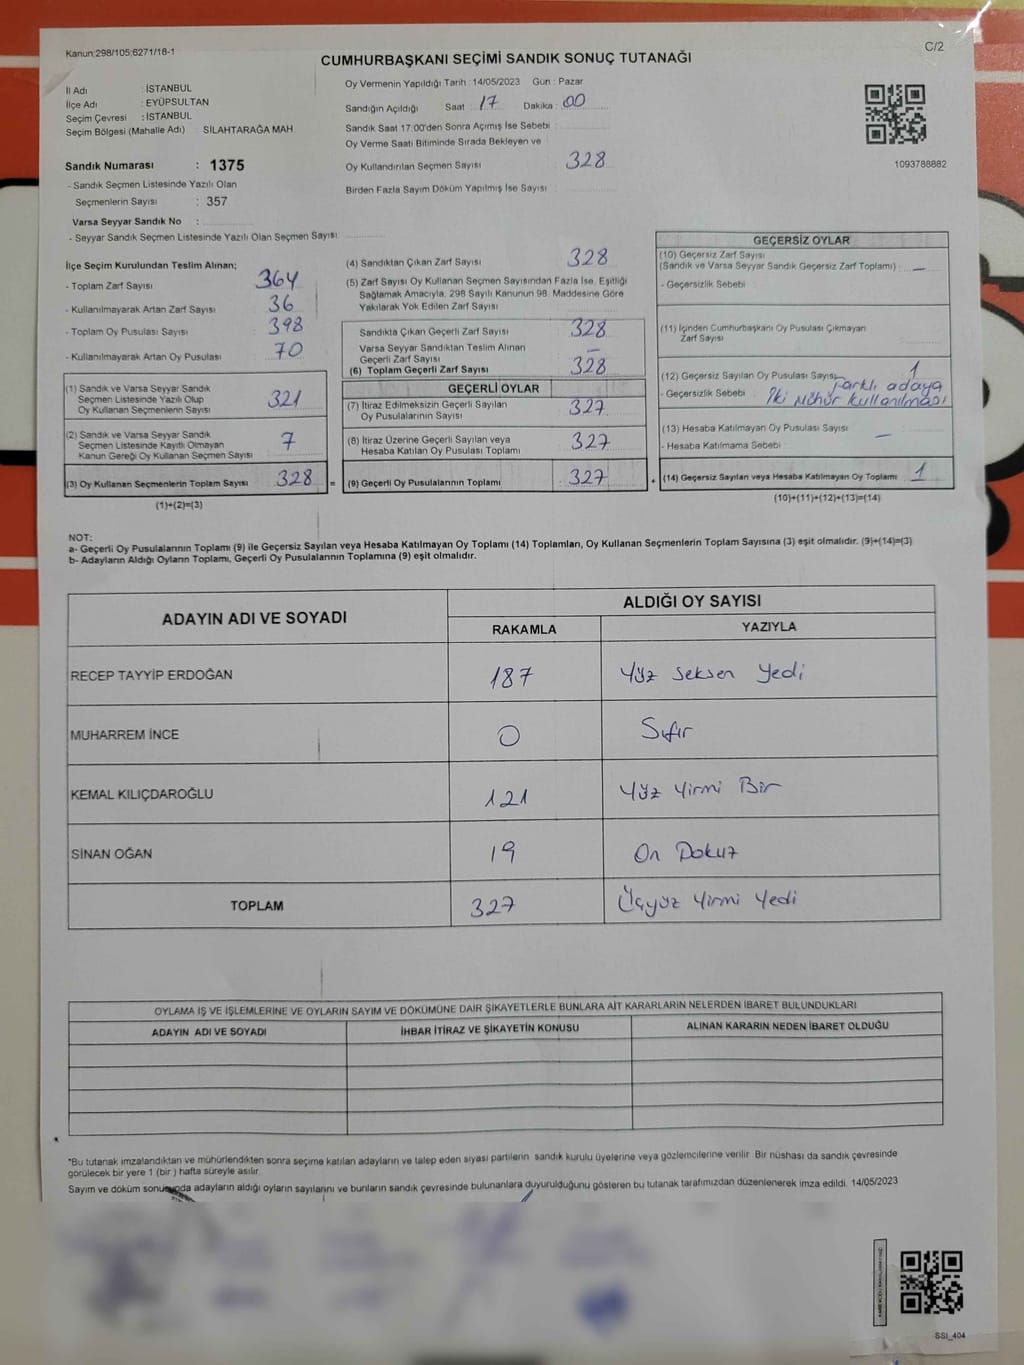 Kanun:298/105,6271/18-1
C/2
CUMHURBAŞKANI SEÇİMİ SANDIK SONUÇ TUTANAĞI
İl Adı : İSTANBUL
İlçe Adı : EYÜPSULTAN
Seçim Çevresi : İSTANBUL
Seçim Bölgesi (Mahalle Adı) : SİLAHTARAĞA MAH.
Oy Vermenin Yapıldığı Tarih : 14/05/2023 Gün : Pazar
Sandığın Açıldığı Saat : 17 Dakika : 00
Sandık Saat 17:00'den Sonra Açımış İse Sebebi :
Oy Verme Saati Bitiminde Sırada Bekleyen ve
Oy Kullandırılan Seçmen Sayısı 328
Birden Fazla Sayım Döküm Yapılmış İse Sayısı :
1093788882
Sandık Numarası : 1375
- Sandık Seçmen Listesinde Yazılı Olan
Seçmenlerin Sayısı : 357
Varsa Seyyar Sandık No :
- Seyyar Sandık Seçmen Listesinde Yazılı Olan Seçmen Sayısı:
İlçe Seçim Kurulundan Teslim Alınan;
- Toplam Zarf Sayısı : 364
- Kullanılmayarak Artan Zarf Sayısı : 36
- Toplam Oy Pusulası Sayısı : 398
- Kullanılmayarak Artan Oy Pusulası : 70
(1) Sandık ve Varsa Seyyar Sandık
Seçmen Listesinde Yazılı Olup
Oy Kullanan Seçmenlerin Sayısı 321
(2) Sandık ve Varsa Seyyar Sandık
Seçmen Listesinde Kayıtlı Olmayan
Kanun Gereği Oy Kullanan Seçmen Sayısı 7
(3) Oy Kullanan Seçmenlerin Toplam Sayısı 328 =
(1)+(2)=(3)
(4) Sandıktan Çıkan Zarf Sayısı 328
(5) Zarf Sayısı Oy Kullanan Seçmen Sayısından Fazla İse, Eşitliği
Sağlamak Amacıyla, 298 Sayılı Kanunun 98. Maddesine Göre
Yakılarak Yok Edilen Zarf Sayısı :
Sandıkta Çıkan Geçerli Zarf Sayısı 328
Varsa Seyyar Sandıktan Teslim Alınan
Geçerli Zarf Sayısı –
(6) Toplam Geçerli Zarf Sayısı 328
GEÇERLİ OYLAR
(7) İtiraz Edilmeksizin Geçerli Sayılan
Oy Pusulalarının Sayısı 327
(8) İtiraz Üzerine Geçerli Sayılan veya
Hesaba Katılan Oy Pusulası Toplamı 327
(9) Geçerli Oy Pusulalarının Toplamı 327 +
GEÇERSİZ OYLAR
(10) Geçersiz Zarf Sayısı
(Sandık ve Varsa Seyyar Sandık Geçersiz Zarf Toplamı) : –
- Geçersizlik Sebebi :
(11) İçinden Cumhurbaşkanı Oy Pusulası Çıkmayan
Zarf Sayısı :
(12) Geçersiz Sayılan Oy Pusulası Sayısı: 1
- Geçersizlik Sebebi : farklı adaya
iki mühür kullanılması
(13) Hesaba Katılmayan Oy Pusulası Sayısı : –
- Hesaba Katılmama Sebebi :
(14) Geçersiz Sayılan veya Hesaba Katılmayan Oy Toplamı : 1
(10)+(11)+(12)+(13)=(14)
NOT:
a- Geçerli Oy Pusulalarının Toplamı (9) ile Geçersiz Sayılan veya Hesaba Katılmayan Oy Toplamı (14) Toplamları, Oy Kullanan Seçmenlerin Toplam Sayısına (3) eşit olmalıdır. (9)+(14)=(3)
b- Adayların Aldığı Oyların Toplamı, Geçerli Oy Pusulalarının Toplamına (9) eşit olmalıdır.
ADAYIN ADI VE SOYADI
ALDIĞI OY SAYISI
RAKAMLA YAZIYLA
RECEP TAYYİP ERDOĞAN 187 Yüz Seksen Yedi
MUHARREM İNCE 0 Sıfır
KEMAL KILIÇDAROĞLU 121 Yüz Yirmi Bir
SİNAN OĞAN 19 On Dokuz
TOPLAM 327 Üçyüz Yirmi Yedi
OYLAMA İŞ VE İŞLEMLERİNE VE OYLARIN SAYIM VE DÖKÜMÜNE DAİR ŞİKAYETLERLE BUNLARA AİT KARARLARIN NELERDEN İBARET BULUNDUKLARI
ADAYIN ADI VE SOYADI İHBAR İTİRAZ VE ŞİKAYETİN KONUSU ALINAN KARARIN NEDEN İBARET OLDUĞU
*Bu tutanak imzalandıktan ve mühürlendikten sonra seçime katılan adayların ve talep eden siyasi partilerin sandık kurulu üyelerine veya gözlemcilerine verilir. Bir nüshası da sandık çevresinde
görülecek bir yere 1 (bir ) hafta süreyle asılır.
Sayım ve döküm sonucunda adayların aldığı oyların sayılarını ve bunların sandık çevresinde bulunanlara duyurulduğunu gösteren bu tutanak tarafımızdan düzenlenerek imza edildi. 14/05/2023
SSI_404